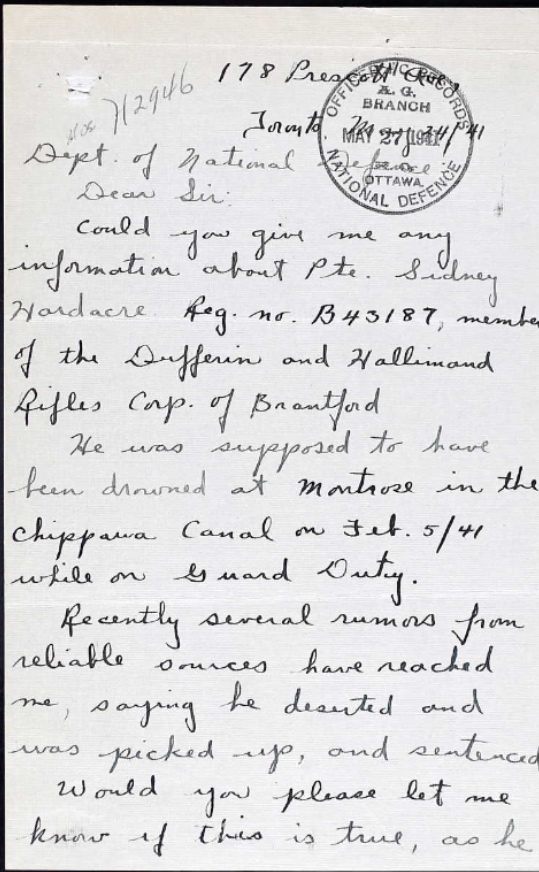 712946
178 Prescott Ave.,
Toronto, May 24/41
OFFICER i/c RECORDS
A. G.
BRANCH
MAY 27 1941
OTTAWA
NATIONAL DEFENCE
Dept. of National Defence.
Dear Sir:
Could you give me any
information about Pte. Sidney
Hardacre. Reg. no. B43187, member
of the Dufferin and Hallimand
Rifles Corp. of Brantford
He was supposed to have
been drowned at Montrose in the
Chippawa Canal on Feb. 5/41
while on Guard Duty.
Recently several rumors from
reliable sources have reached
me, saying he deserted and
was picked up, and sentenced
Would you please let me
know if this is true, as he